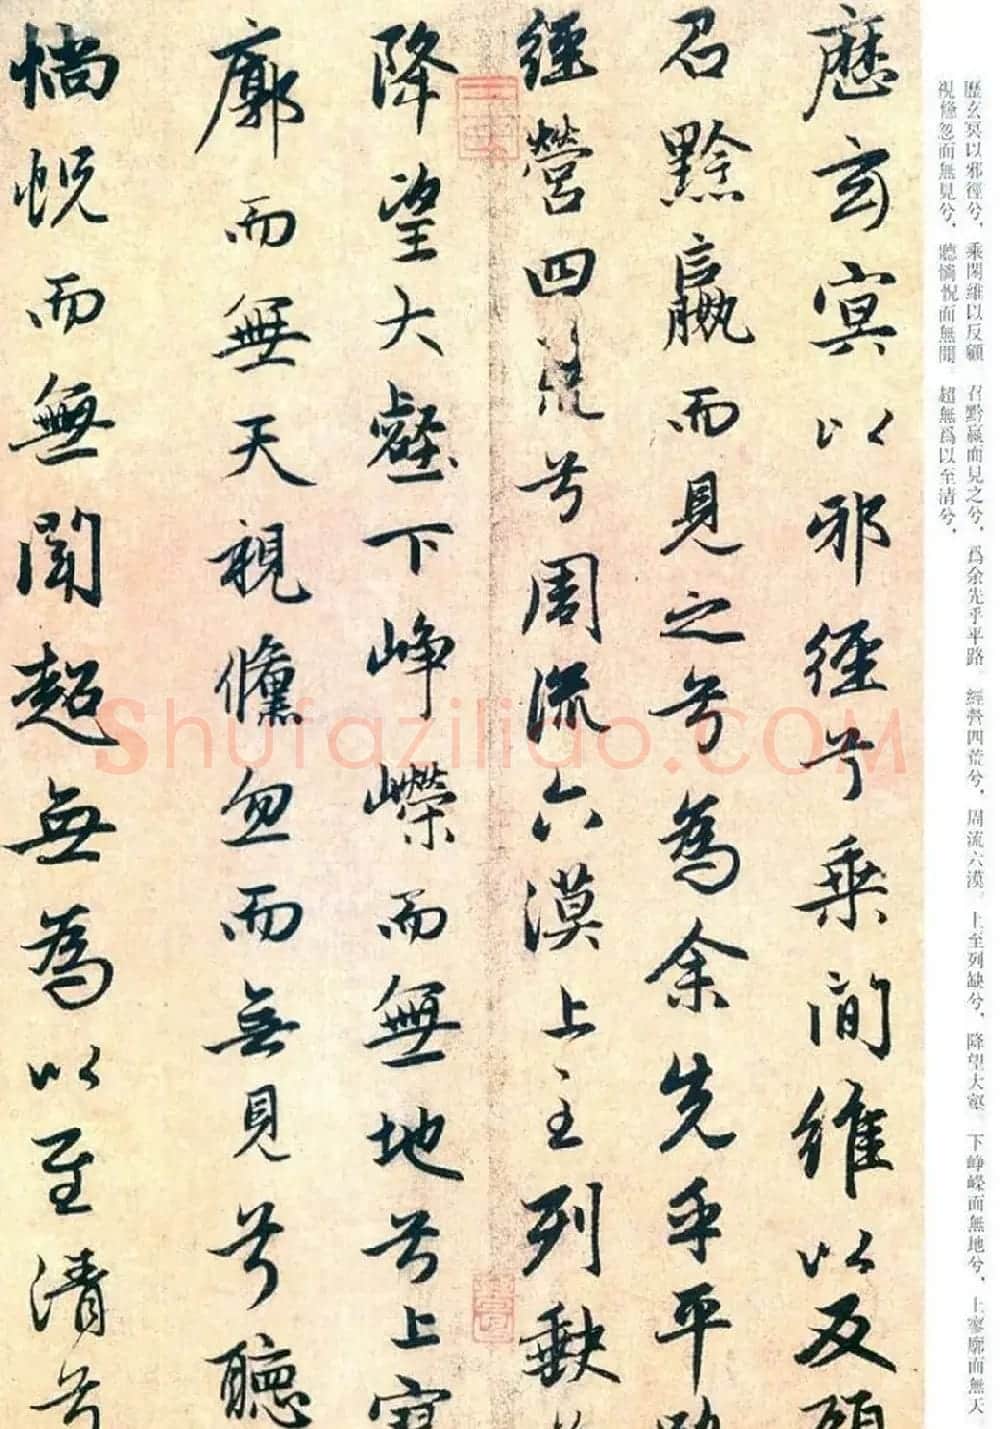 歷玄冥以邪徑兮，乘間維以反顧 召黔嬴而見之兮，爲余先乎平路。經營四荒兮，周流六漠。上至列缺兮，降望大壑。下崢嶸而無地兮，上寥廓而無天
視儵忽而無見兮，聽惝怳而無聞。超無爲以至清兮，
歷玄冥以邪徑兮乘間維以反顧
召黔嬴而見之兮為余先乎平路
經營四荒兮周流六漠上至列缺
降望大壑下崢嶸而無地兮上寥
廓而無天視儵忽而無見兮聽
惝怳而無聞超無為以至清兮
Shufaziliao.COM